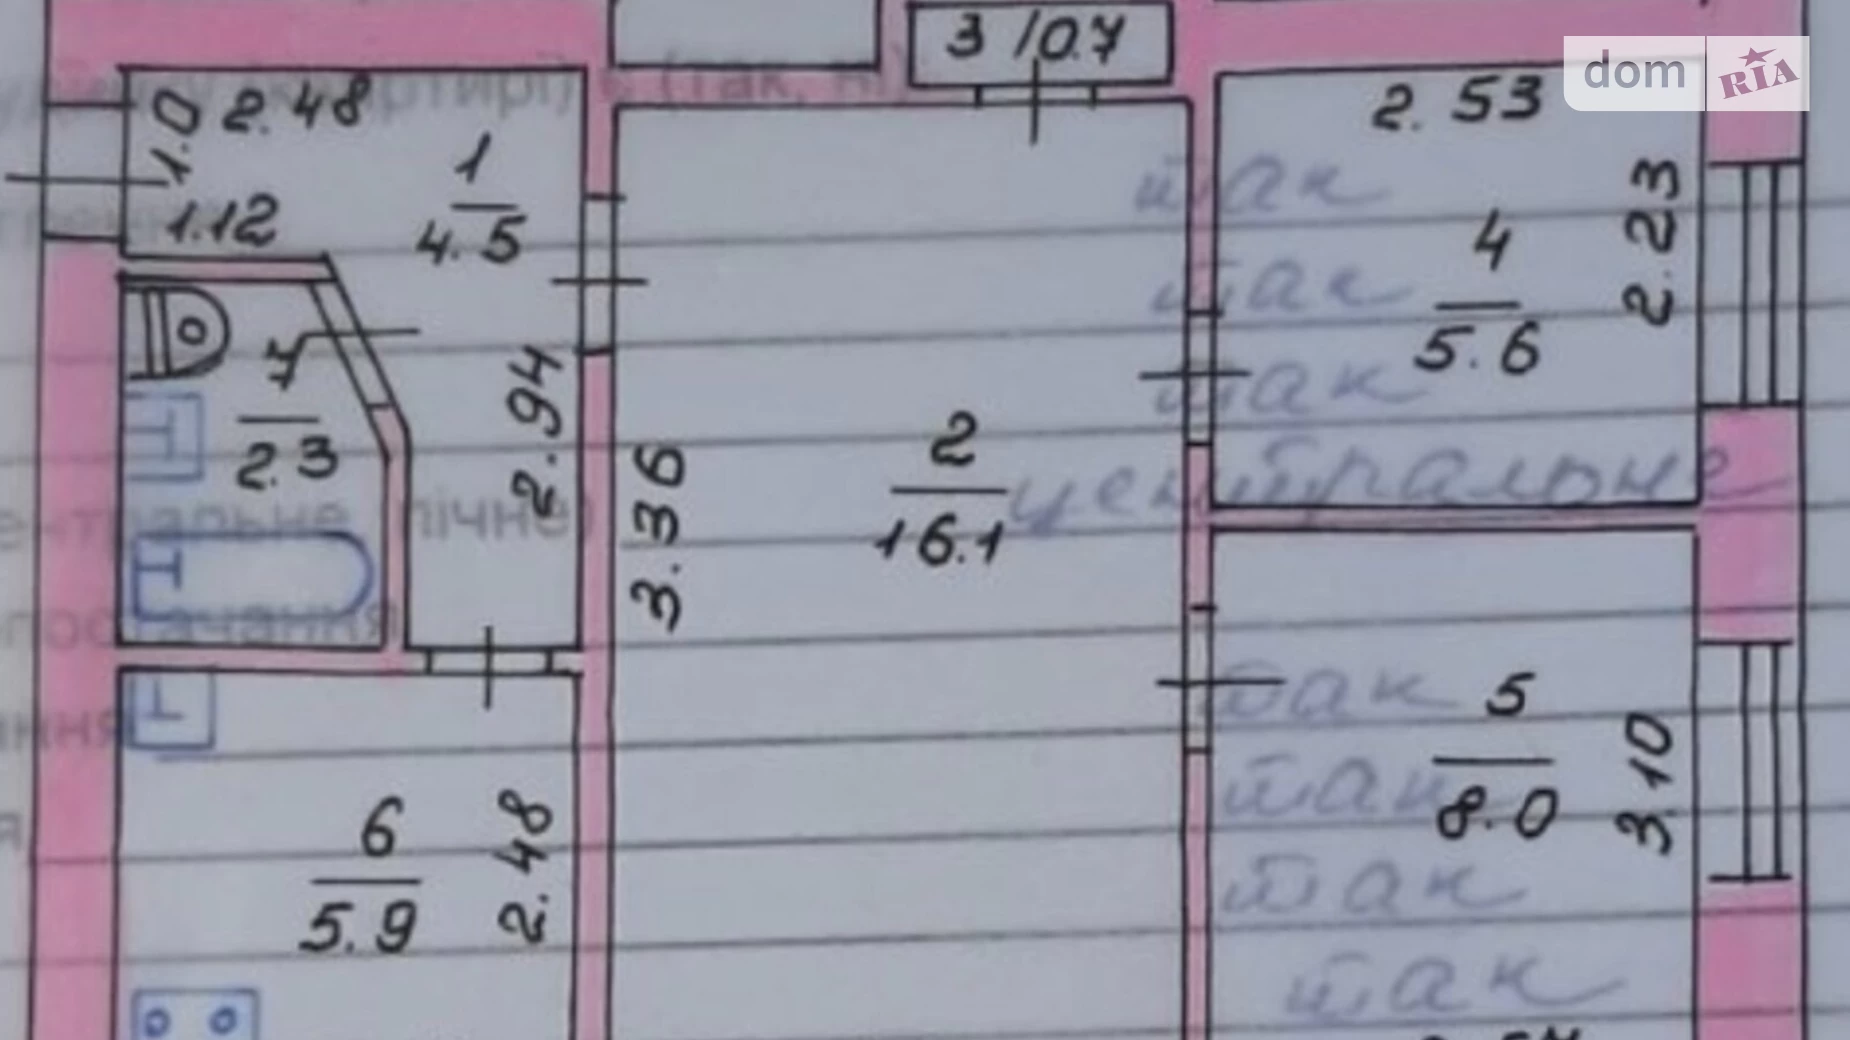 3 / 0.7
dom RIA
1.0 2.48
2.53
1
4.5
1.12
так
2.23
4
5.6
так
7
2.3
2.94
так
3.36
2
16.1
центральне
так
5
8.0
3.10
6
5.9
2.48
так
так
так